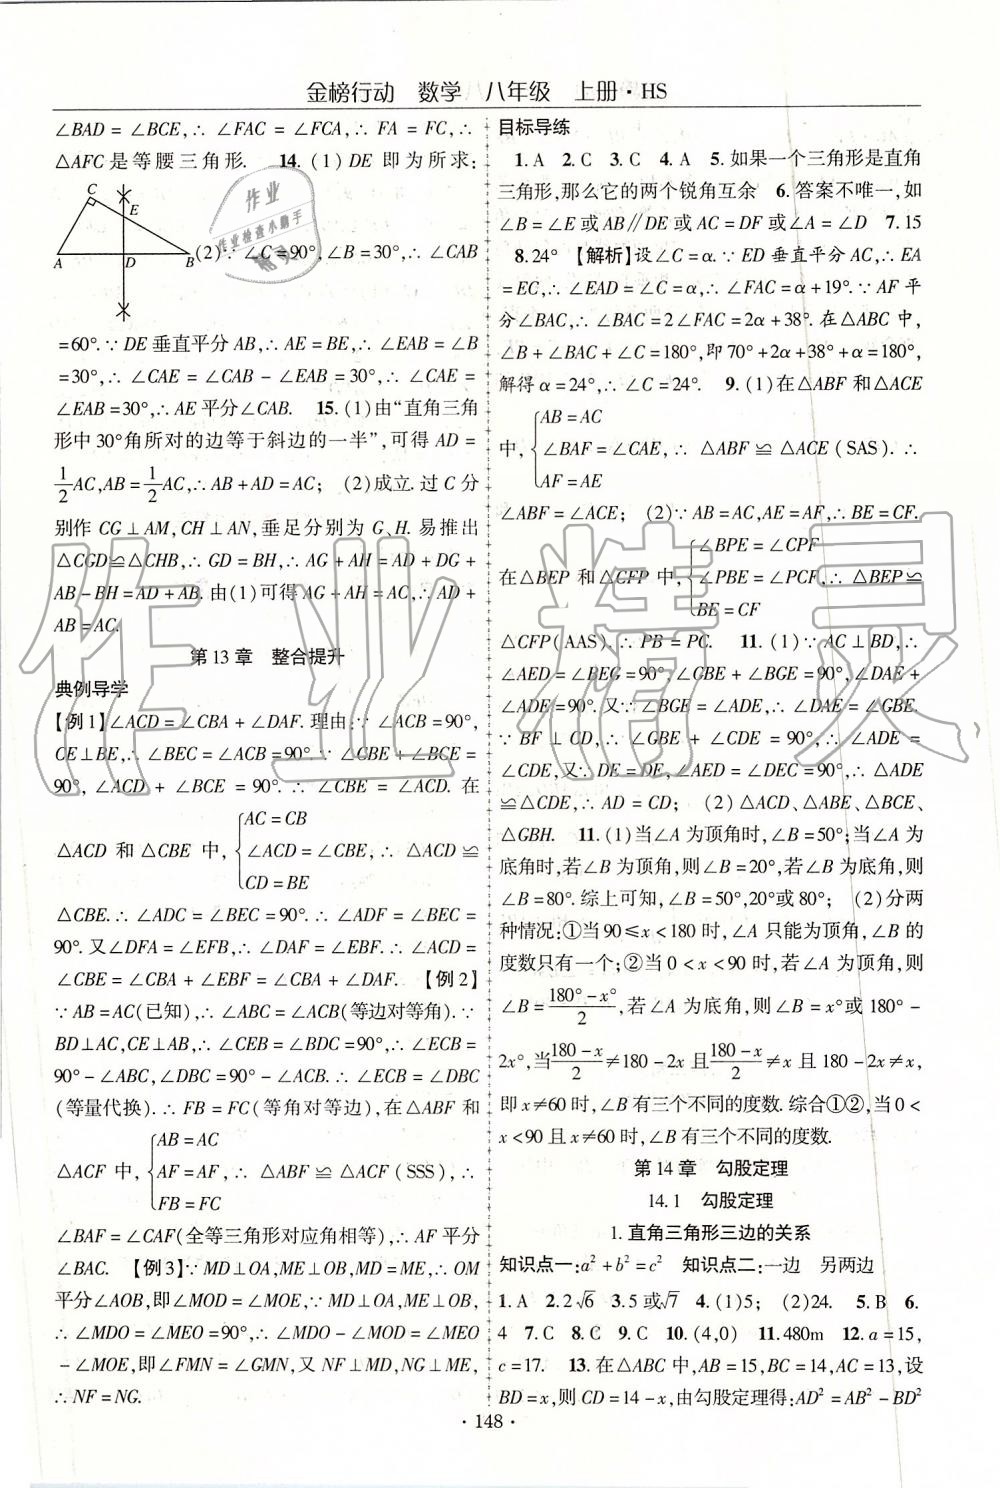 金榜行动　数学　八年级　上册·HS
∠BAD = ∠BCE,∴ ∠FAC = ∠FCA,∴ FA = FC,∴
△AFC 是等腰三角形.　14. (1) DE 即为所求:
C
E
A
D
B
(2)∵ ∠C=90°,∠B=30°,∴ ∠CAB
=60°.∵ DE 垂直平分 AB,∴ AE=BE,∴ ∠EAB=∠B
=30°,∴ ∠CAE = ∠CAB - ∠EAB = 30°,∴ ∠CAE =
∠EAB=30°,∴ AE 平分∠CAB.　15. (1)由“直角三角
形中 30°角所对的边等于斜边的一半”,可得 AD =
1/2 AC,AB = 1/2 AC,∴ AB+AD=AC;　(2)成立. 过 C 分
别作 CG⊥AM,CH⊥AN,垂足分别为 G、H. 易推出
△CGD≌△CHB,∴ GD = BH,∴ AG + AH = AD + DG +
AB-BH=AD+AB. 由(1)可得 AG+AH=AC,∴ AD+
AB=AC.
第 13 章　整合提升
典例导学
【例 1】∠ACD=∠CBA+∠DAF. 理由:∵ ∠ACB=90°,
CE⊥BE,∴ ∠BEC=∠ACB=90°.∵ ∠CBE+∠BCE=
90°, ∠ACD + ∠BCE = 90°.∴ ∠CBE = ∠ACD. 在
△ACD 和△CBE 中,{AC=CB
∠ACD=∠CBE,∴ △ACD ≌
CD=BE
△CBE.∴ ∠ADC=∠BEC=90°.∴ ∠ADF=∠BEC=
90°. 又∠DFA=∠EFB,∴ ∠DAF=∠EBF.∴ ∠ACD=
∠CBE=∠CBA+∠EBF=∠CBA+∠DAF.　【例 2】
∵ AB=AC(已知),∴ ∠ABC=∠ACB(等边对等角).∵
BD⊥AC,CE⊥AB,∴ ∠CEB=∠BDC=90°,∴ ∠ECB=
90°-∠ABC,∠DBC=90°-∠ACB.∴ ∠ECB=∠DBC
(等量代换).∴ FB=FC(等角对等边),在△ABF 和
△ACF 中,{AB=AC
AF=AF,∴ △ABF ≌ △ACF (SSS),∴
FB=FC
∠BAF=∠CAF(全等三角形对应角相等),∴ AF 平分
∠BAC.　【例 3】∵ MD⊥OA,ME⊥OB,MD=ME,∴ OM
平分∠AOB,即∠MOD=∠MOE,∵ MD⊥OA,ME⊥OB,
∴ ∠MDO=∠MEO=90°,∴ ∠MDO-∠MOD=∠MEO
-∠MOE,即∠FMN=∠GMN,又 NF⊥MD,NG⊥ME,
∴ NF=NG.
目标导练
1. A　2. C　3. C　4. A　5. 如果一个三角形是直角
三角形,那么它的两个锐角互余　6. 答案不唯一,如
∠B=∠E 或 AB∥DE 或 AC=DF 或∠A=∠D　7. 15
8. 24°　【解析】设∠C=α.∵ ED 垂直平分 AC,∴ EA
=EC,∴ ∠EAD=∠C=α,∴ ∠FAC=α+19°.∵ AF 平
分∠BAC,∴ ∠BAC=2∠FAC=2α+38°. 在△ABC 中,
∠B+∠BAC+∠C=180°,即 70°+2α+38°+α=180°,
解得 α=24°,∴ ∠C=24°.　9. (1)在△ABF 和△ACE
中,{AB=AC
∠BAF=∠CAE,∴ △ABF ≌ △ACE (SAS).∴
AF=AE
∠ABF=∠ACE;　(2)∵ AB=AC,AE=AF,∴ BE=CF.
在△BEP 和△CFP 中,{∠BPE=∠CPF
∠PBE=∠PCF,∴ △BEP≌
BE=CF
△CFP(AAS).∴ PB=PC.　11. (1)∵ AC⊥BD,∴
∠AED=∠BEG=90°,∠GBE+∠BGE=90°,∠DAE+
∠ADE=90°. 又∵ ∠BGE=∠ADE,∴ ∠DAE=∠GBE.
∵ BF ⊥ CD,∴ ∠GBE + ∠CDE = 90°,∴ ∠ADE =
∠CDE,又∵ DE=DE,∠AED=∠DEC=90°,∴ △ADE
≌△CDE,∴ AD=CD;　(2)△ACD、△ABE、△BCE、
△GBH.　11. (1)当∠A 为顶角时,∠B=50°;当∠A 为
底角时,若∠B 为顶角,则∠B=20°,若∠B 为底角,则
∠B=80°. 综上可知,∠B=50°,20°或 80°;　(2)分两
种情况:①当 90≤x<180 时,∠A 只能为顶角,∠B 的
度数只有一个;②当 0<x<90 时,若∠A 为顶角,则
∠B=180°-x°/2,若∠A 为底角,则∠B=x°或 180°-
2x°,当180-x/2≠180-2x 且180-x/2≠x 且 180-2x≠x,
即 x≠60 时,∠B 有三个不同的度数. 综合①②,当 0<
x<90 且 x≠60 时,∠B 有三个不同的度数.
第 14 章　勾股定理
14.1　勾股定理
1. 直角三角形三边的关系
知识点一:a²+b²=c²　知识点二:一边　另两边
1. A　2. 2√6　3. 5 或√7　4. (1)5;　(2)24.　5. B　6.
4　7. C　8. C　9. C　10. (4,0)　11. 480m　12. a=15,
c=17.　13. 在△ABC 中,AB=15,BC=14,AC=13,设
BD=x,则 CD=14-x,由勾股定理得:AD²=AB²-BD²
·148·
作业
作业检查小助手
精灵
作业精灵